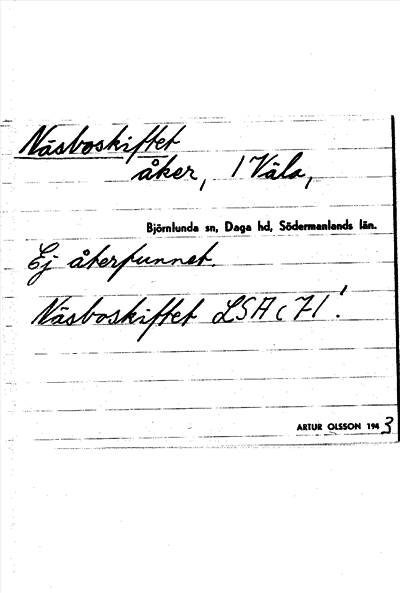 Näsboskiftet
åker, 1 Väla,
Björnlunda sn, Daga hd, Södermanlands län.
Ej återfunnet.
Näsboskiftet LSA C 71!
ARTUR OLSSON 1943